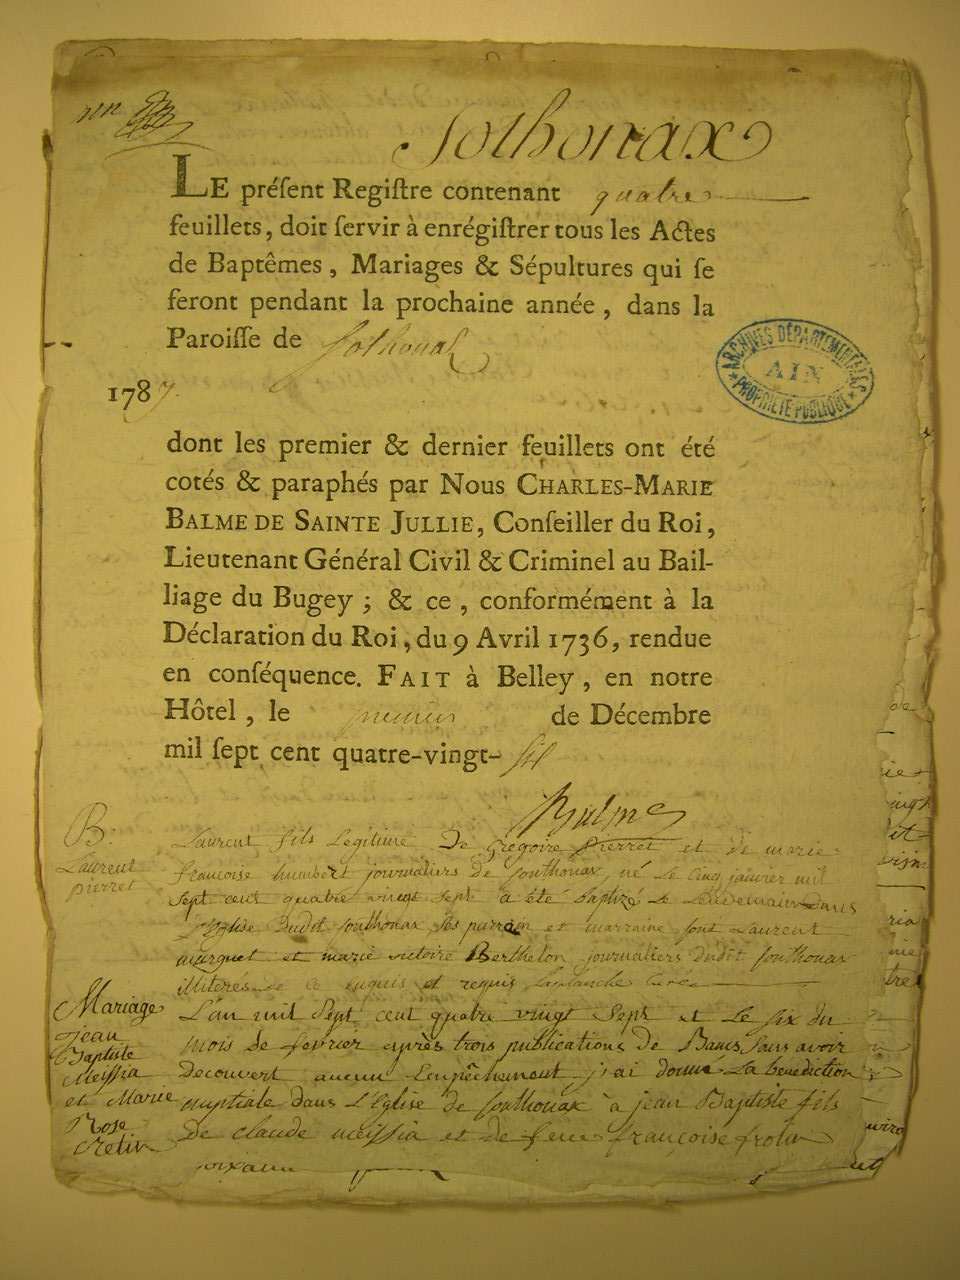 Sothonax
LE préſent Regiſtre contenant quatre
feuillets, doit ſervir à enrégiſtrer tous les Actes
de Baptêmes, Mariages & Sépultures qui ſe
feront pendant la prochaine année, dans la
Paroiſſe de Sothonax
1787.
ARCHIVES DÉPARTEMENTALES
AIN
PROPRIÉTÉ PUBLIQUE
dont les premier & dernier feuillets ont été
cotés & paraphés par Nous CHARLES-MARIE
BALME DE SAINTE JULLIE, Conſeiller du Roi,
Lieutenant Général Civil & Criminel au Bail-
liage du Bugey; & ce, conformément à la
Déclaration du Roi, du 9 Avril 1736, rendue
en conſéquence. FAIT à Belley, en notre
Hôtel, le premier de Décembre
mil ſept cent quatre-vingt-six
Balme
B.
Laurent
pierret
Laurent fils Legitime De Gregoire Pierret et de marie
françoise humbert journaliers de Sonthonax, né Le Cinq janvier mil
sept cent quatre vingt sept a été baptizé Le Lendemain dans
L'Eglise Dudit Sonthonax Ses parrain et marraine sont Laurent
murguet et marie victoire Berthelon journaliers dudit Sonthonax
illiterés de ce enquis et requis
Mariage
jean
Baptiste
Meissia
et Marie
Rose
Cretin
L'an mil Sept cent quatre vingt Sept et Le Six du
mois de fevrier après trois publications de Bancs Sans avoir
decouvert aucun Empêchement j'ai donné La benediction
nuptiale dans L'Eglise de Sonthonax à jean Baptiste fils
de claude meissia et de feue françoise